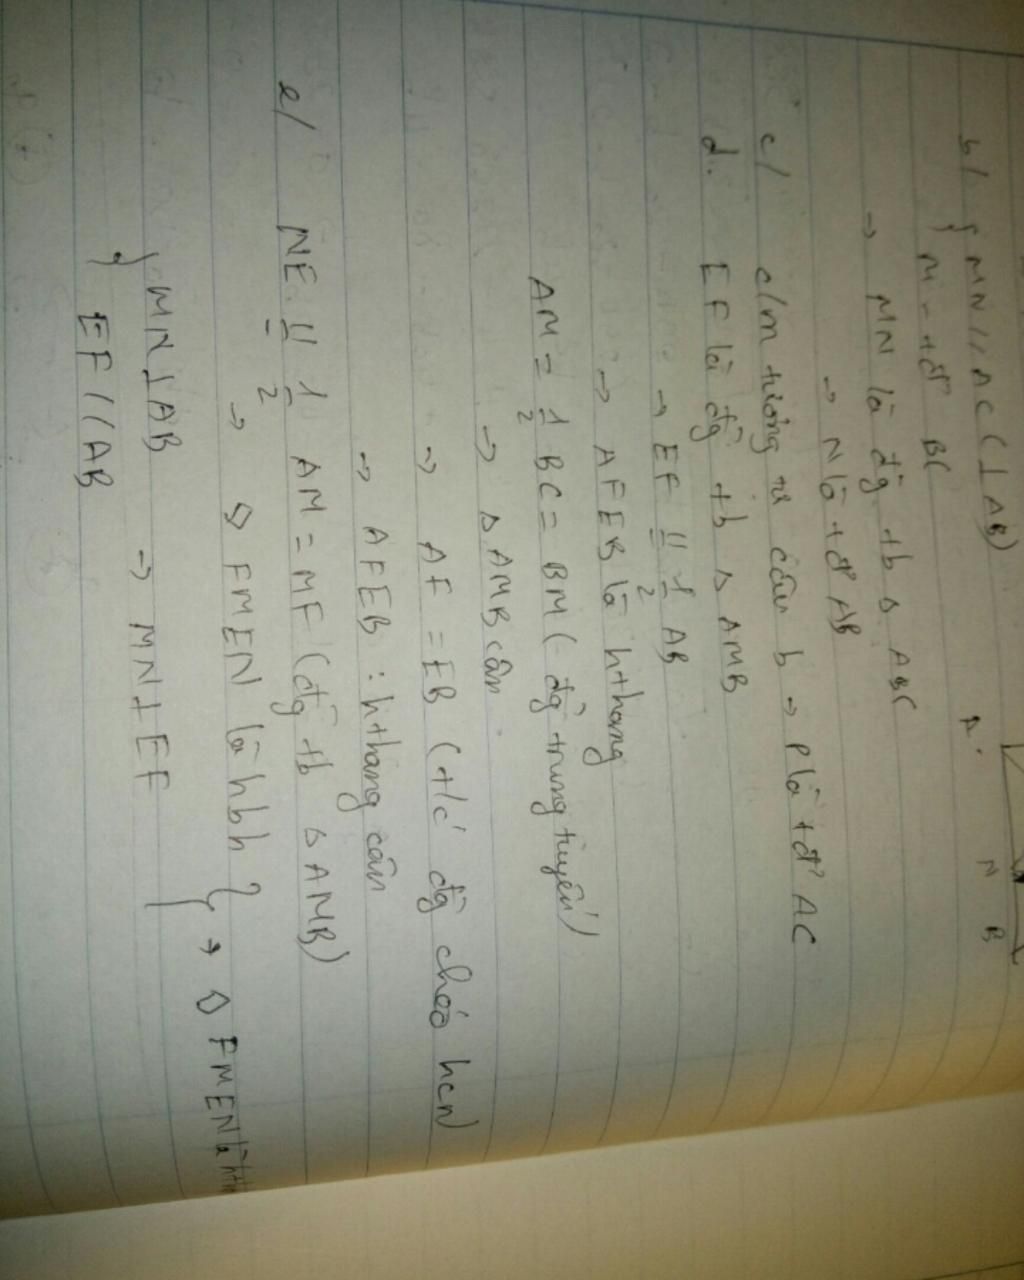 A. N B
b/ { MN // AC (⊥ AB)
{ M - tđ BC
→ MN là đg tb Δ ABC
→ N là tđ AB
c/ c/m tương tự câu b → P là tđ AC
d. EF là đg tb Δ AMB
→ EF // = 1/2 AB
→ AFEB là hthang
AM = 1/2 BC = BM ( đg trung tuyến)
→ Δ AMB cân.
→ AF = EB (t/c đg chéo hcn)
→ AFEB : hthang cân
e/ NE // = 1/2 AM = MF (đg tb Δ AMB)
→ ◊ FMEN là hbh } → ◊ FMEN là hth
{ MN ⊥ AB → MN ⊥ EF
{ EF // AB